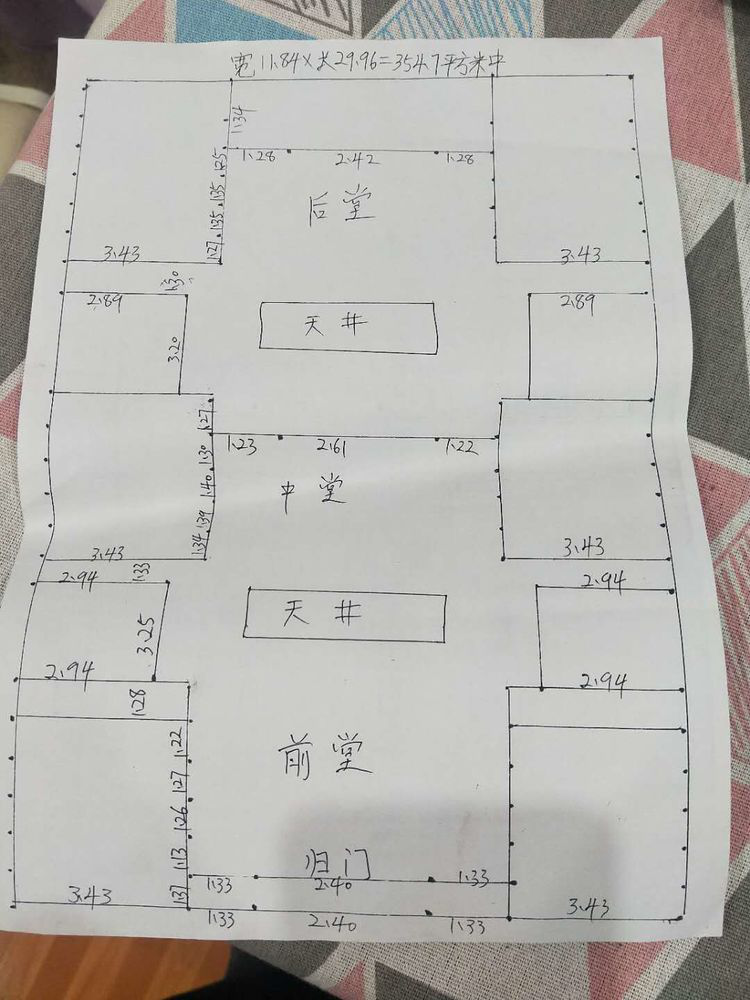 宽11.84×长29.96=354.7平方米中
1.34
1.28 2.42 1.28
1.25
1.35
1.35
1.27
后堂
3.43 3.43
1.30
2.89 2.89
天井
3.20
1.27
1.23 2.61 1.22
1.30
1.40
1.39
1.34
中堂
3.43 3.43
1.33
2.94 2.94
天井
3.25
2.94 2.94
1.28
1.22
前堂
1.27
1.26
1.13
归门
1.33 2.40 1.33
1.37
3.43 3.43
1.33 2.40 1.33